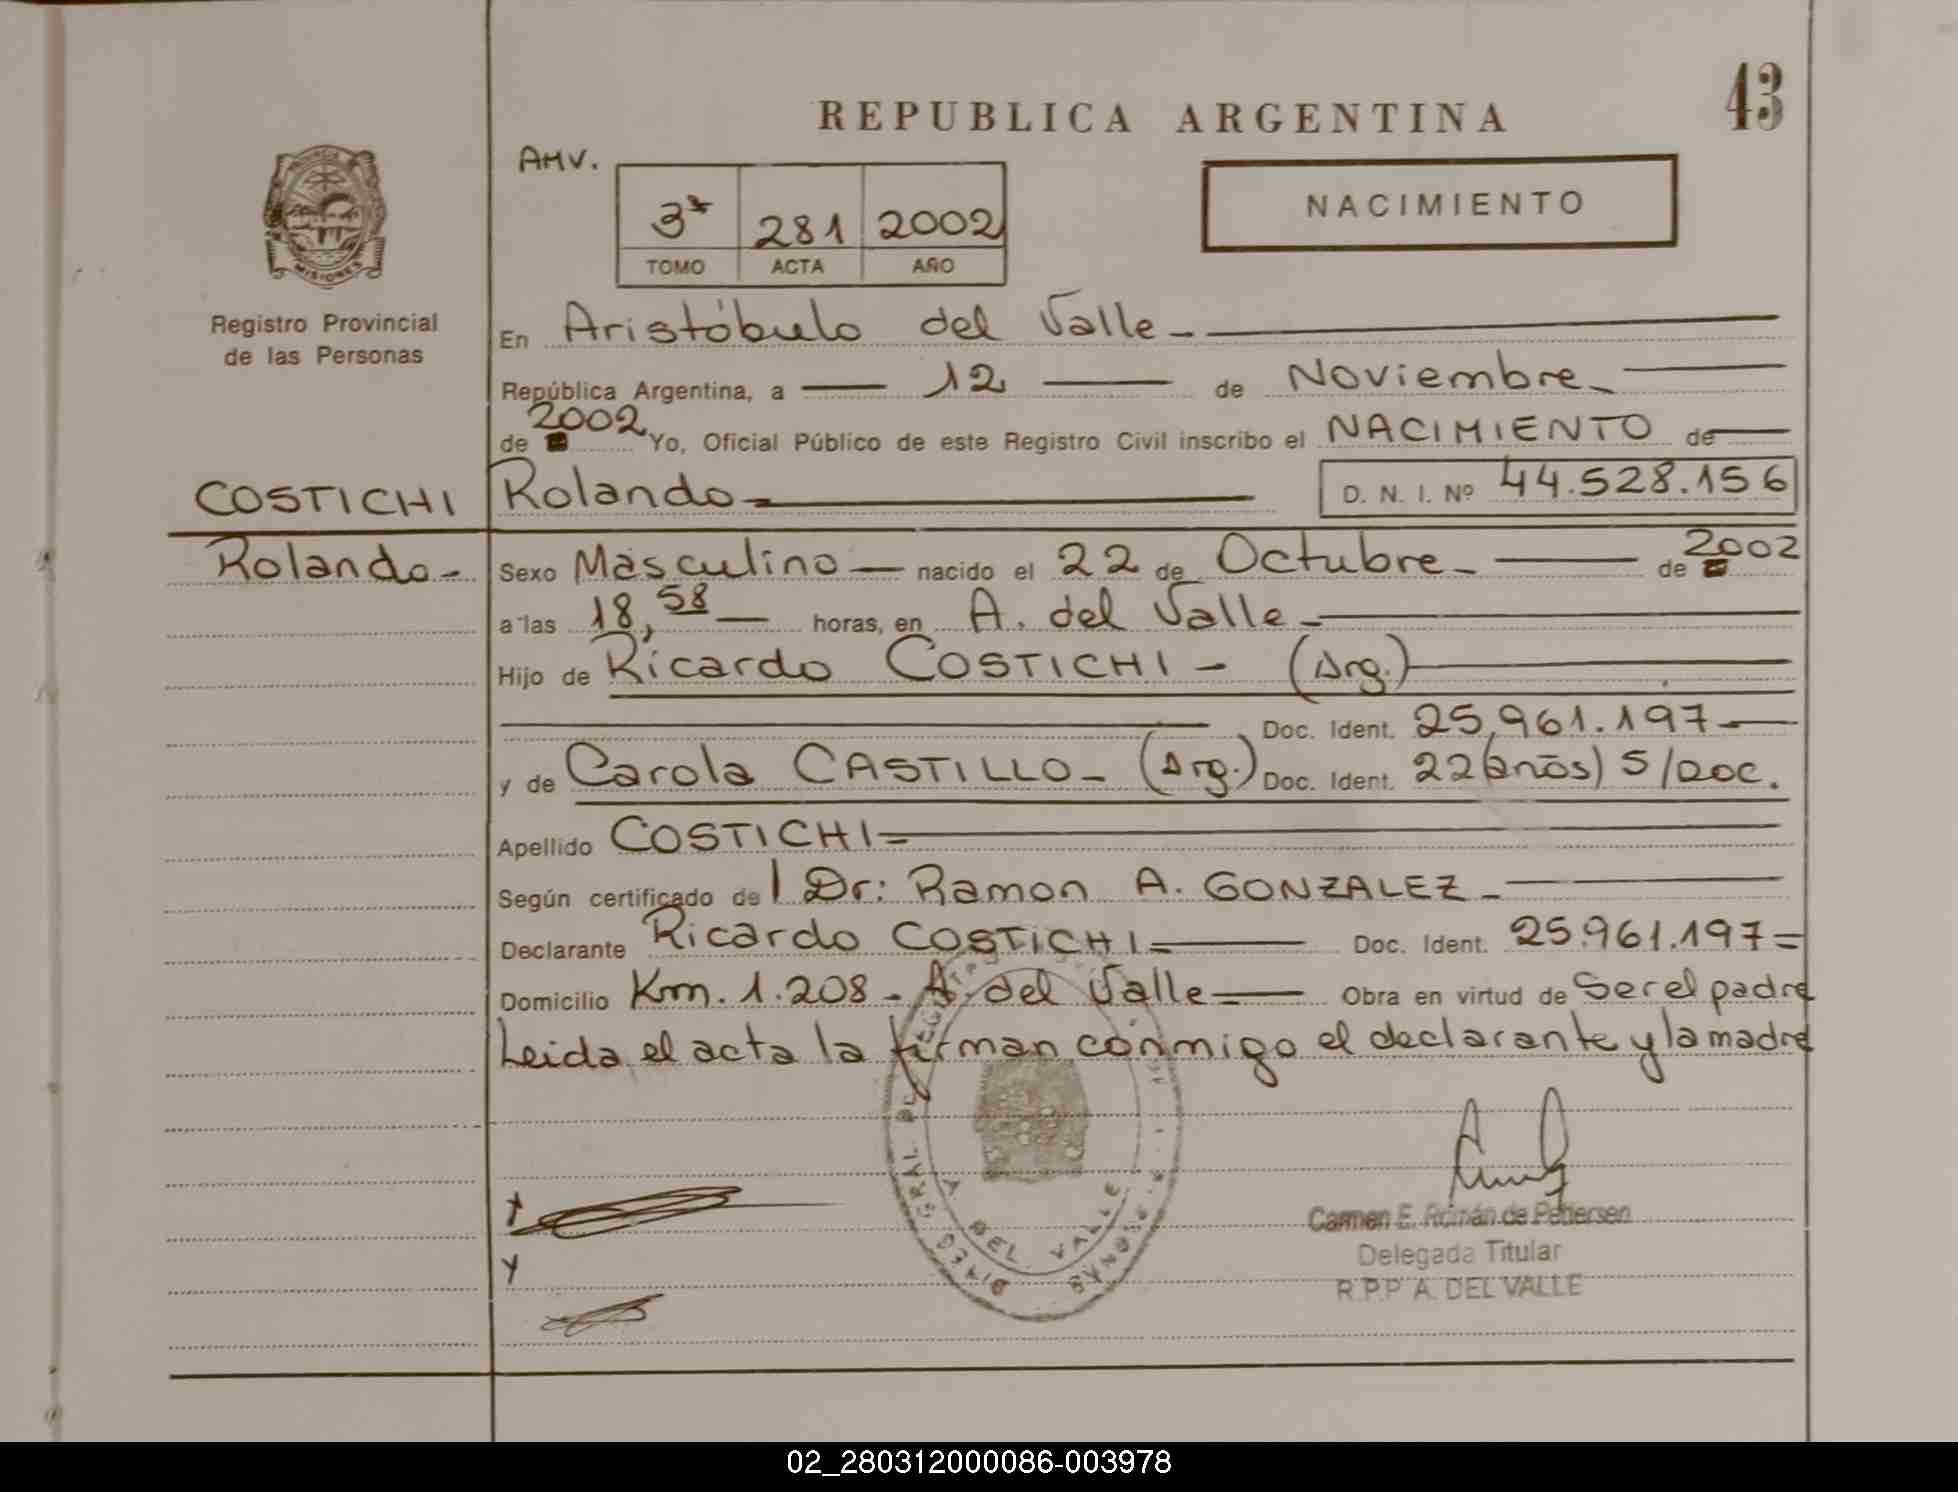 43
REPUBLICA ARGENTINA
AMV.
NACIMIENTO
3* 281 2002
TOMO ACTA AÑO
MISIONES
Registro Provincial
de las Personas
En Aristóbulo del Valle -
República Argentina, a 12 de Noviembre -
de 2002 Yo, Oficial Público de este Registro Civil inscribo el NACIMIENTO de
COSTICHI Rolando = D. N. I. Nº 44.528.156
Rolando - Sexo Masculino - nacido el 22 de Octubre - de 2002
a las 18,58 horas, en A. del Valle -
Hijo de Ricardo COSTICHI - (Arg.)
Doc. Ident. 25,961.197 -
y de Carola CASTILLO - (Arg.) Doc. Ident. 22(años) S/Doc.
Apellido COSTICHI =
Según certificado del Dr: Ramon A. GONZALEZ -
Declarante Ricardo COSTICHI = Doc. Ident. 25.961.197 =
Domicilio Km. 1.208 - A. del Valle = Obra en virtud de Ser el padre
Leida el acta la firman conmigo el declarante y la madre
A. DEL VALLE
Carmen E. Román de Pedersen
Delegada Titular
R.P.P A. DEL VALLE
Y
02_280312000086-003978